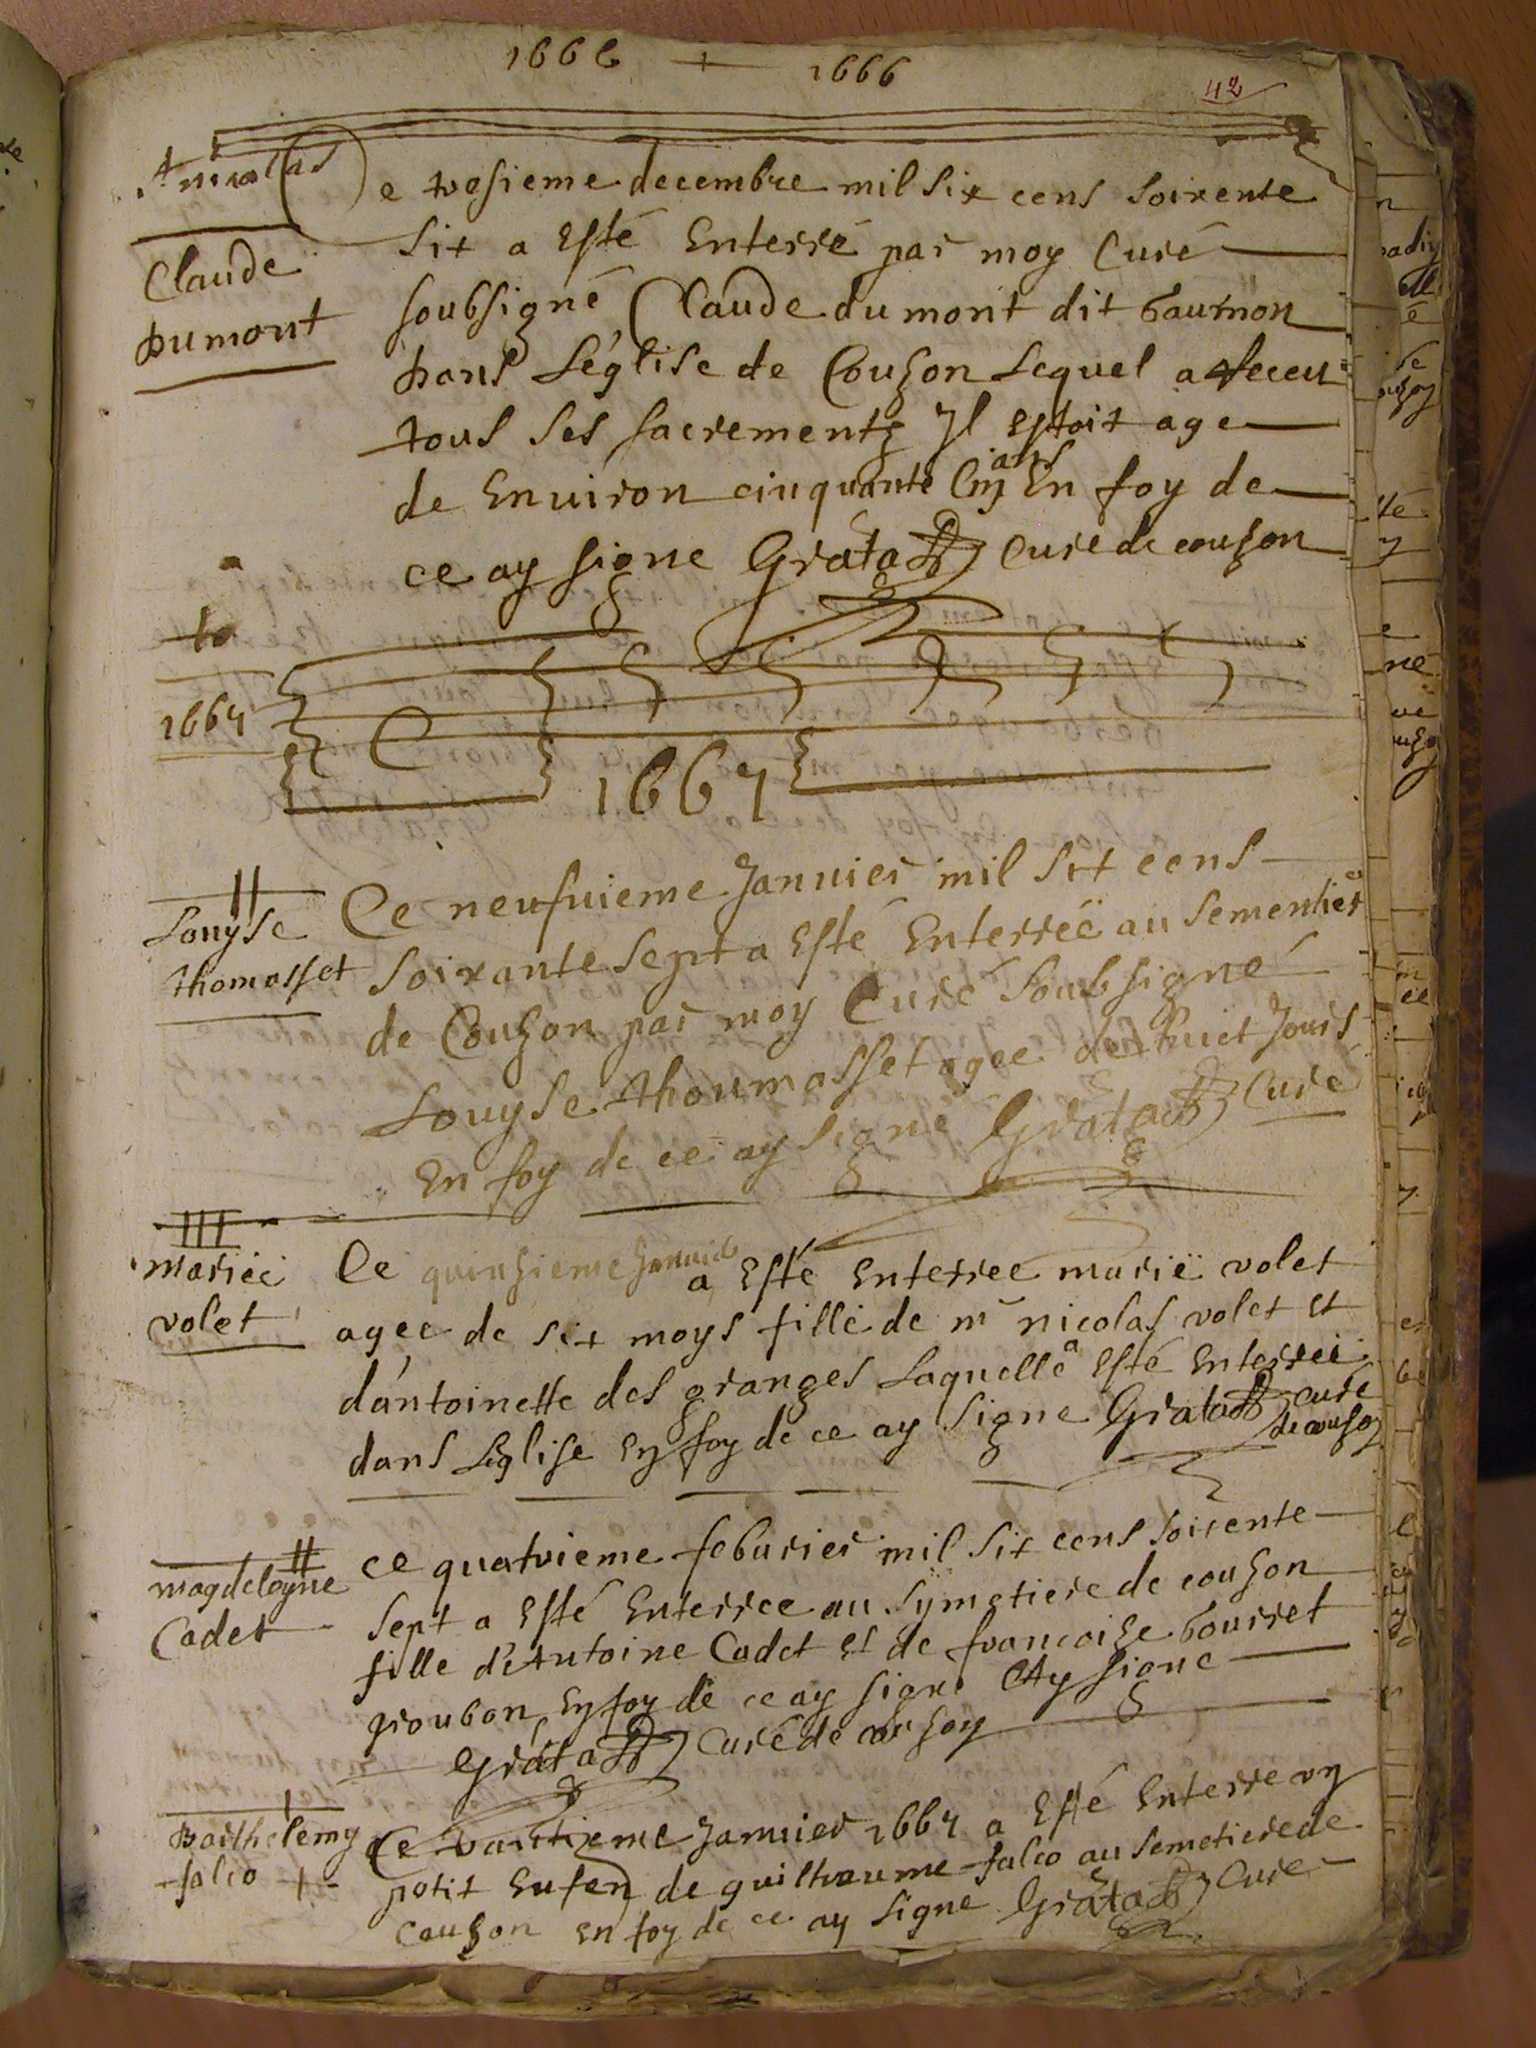 1666 1666
42
St nicollas
Claude
Dumont
Ce trosieme decembre mil six cens soixente
six a Esté Enterré par moy Curé
soubsigné Claude dumont dit
Dans L'église de Couson Lequel a Receu
tous ses sacrements Jl Estoit age
de Environ cinquante Cinq ans En foy de
ce ay signe Gratard Cure de couson
to
1667
1667
Louyse
thomasset
Ce neufuieme Januier mil six cens
soixante sept a Esté Enterreë au sementier
de Couson par moy Curé soubsigné
Louyse thoumasset agee de huict Jours
En foy de ce ay signé Gratard Curé
mariee
volet
Ce quinsieme Januie a Esté Enterree marië volet
agee de six moys fille de mr nicolas volet et
d'antoinette des granges Laquelle a Esté Enterreë
dans Leglise En foy de ce ay signe Gratard curé
de couson
magdelayne
Cadet
ce quatrieme feburier mil six cens soixente
sept a Esté Enterree au symetiere de couson
fille d'Antoine Cadet et de francoise
En foy de ce ay signe Ay signe
Gratard Curé de couson
Barthelemy
falco
Ce Januier 1667 a Esté Enterre vn
petit Enfen de guilheaume falco au semetiere de
Couson En foy de ce ay signe Gratard Cure